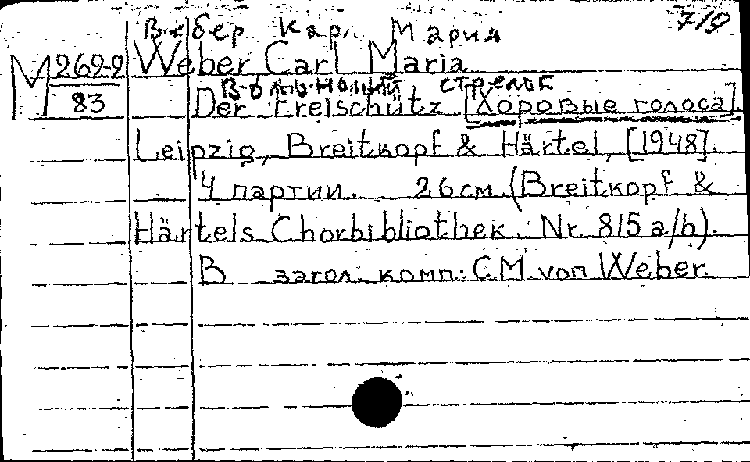 Вебер Кар. Мария 719
М 269-9 Weber Carl Maria
83 Вольный стрелок
Der Freischütz [Хоровые голоса].
Leipzig, Breitkopf & Härtel, [1948].
4 партии. 26 см. (Breitkopf &
Härtels Chorbibliothek. Nr. 815 a/b).
В загол. комп.: C.M. von Weber.